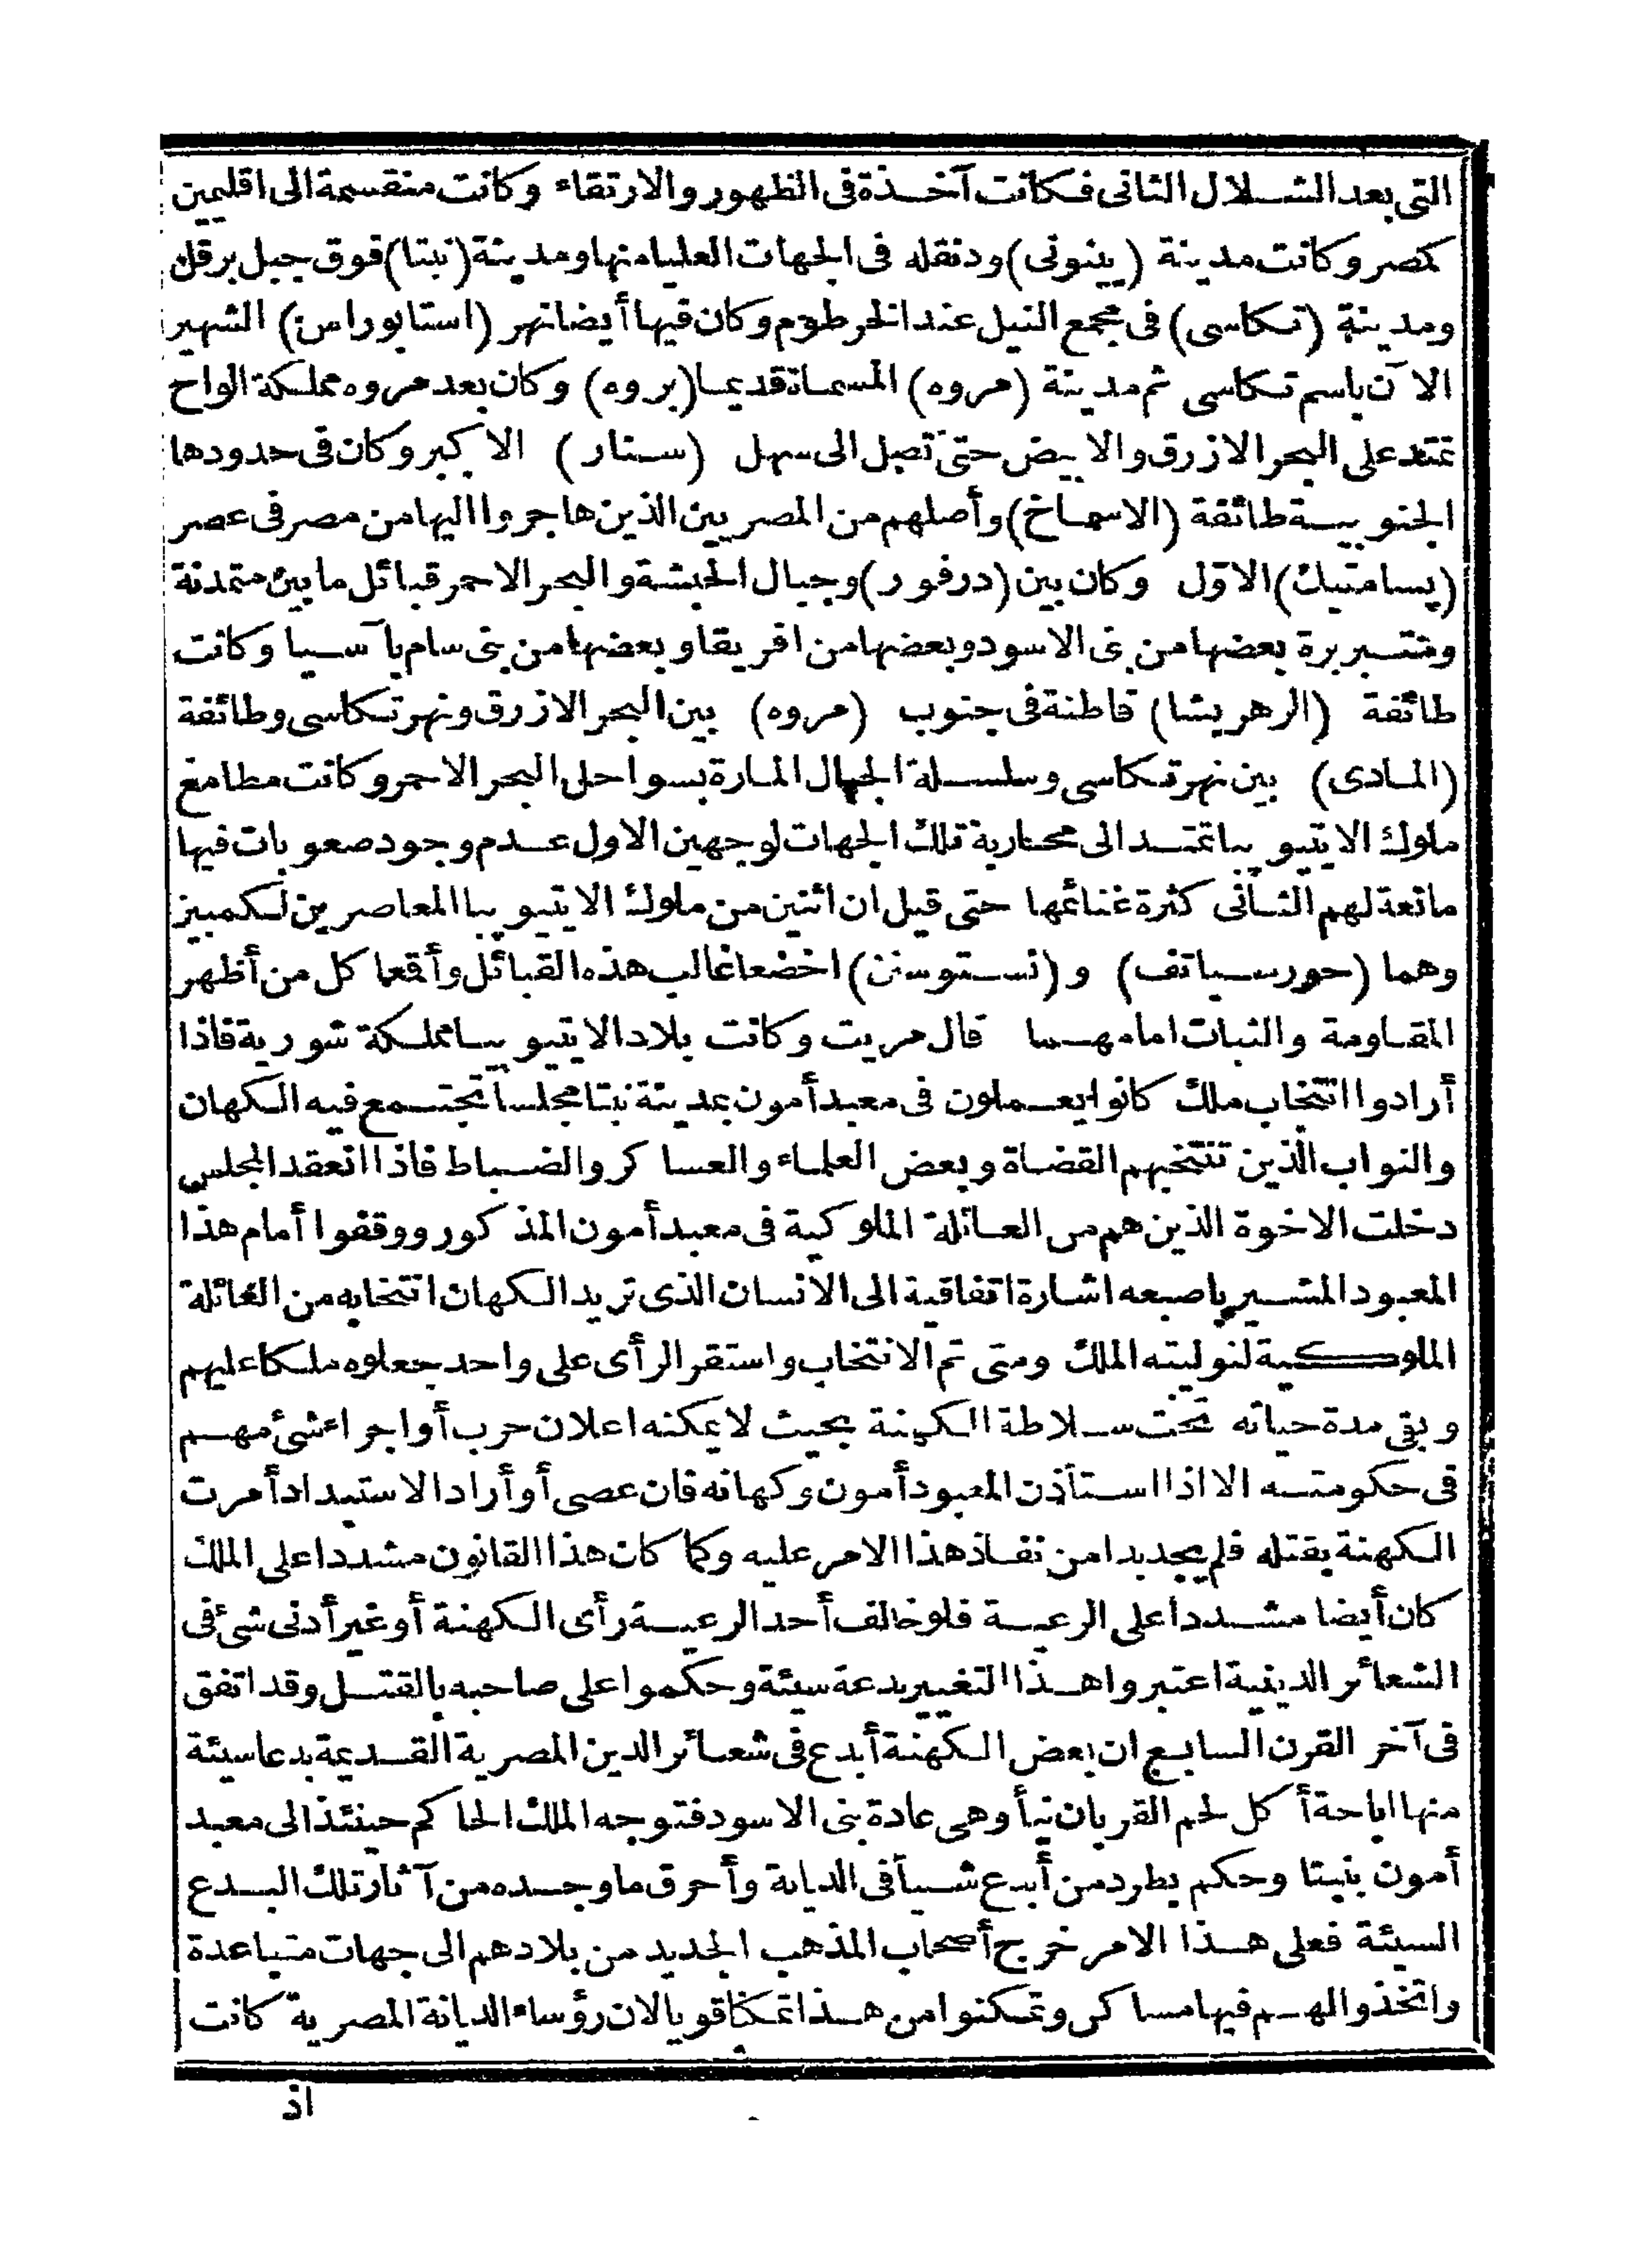 التى بعد الشلال الثانى فكانت آخذة فى الظهور والارتقاء وكانت منقسمة الى اقليمين
كمصر وكانت مدينة (پينوتى) ودنقله فى الجهات العليا منها ومدينة (نبتا) فوق جبل برقل
ومدينة (تكاسى) فى مجمع النيل عند الخرطوم وكان فيها أيضا نهر (استابوراس) الشهير
الآن باسم تكاسى ثم مدينة (مروه) المسماة قديما (بروه) وكان بعد مروه مملكة الواح
تمتد على البحر الازرق والابيض حتى تصل الى سهل (سنار) الاكبر وكان فى حدودها
الجنوبية طائفة (الاسماخ) وأصلهم من المصريين الذين هاجروا اليها من مصر فى عصر
(پسامتيك) الاول وكان بين (درفور) وجبال الحبشة والبحر الاحمر قبائل ما بين متمدنة
ومتبربرة بعضها من بنى الاسود وبعضها من افريقا وبعضها من بنى سام بآسيا وكانت
طائفة (الرهريشا) قاطنة فى جنوب (مروه) بين البحر الازرق ونهر تكاسى وطائفة
(المادى) بين نهر تكاسى وسلسلة الجبال المارة بسواحل البحر الاحمر وكانت مطامع
ملوك الايتيوبيا تمتد الى محاربة تلك الجهات لوجهين الاول عدم وجود صعوبات فيها
مانعة لهم الثانى كثرة غنائمها حتى قيل ان اثنين من ملوك الايتيوبيا المعاصرين لكمبيز
وهما (حورسياتف) و (نستوسنن) اخضعا غالب هذه القبائل وأقعا كل من أظهر
المقاومة والثبات امامهما قال مريت وكانت بلاد الايتيوبيا مملكة شورية فاذا
أرادوا انتخاب ملك كانوا يعملون فى معبد أمون بمدينة نبتا مجلسا تجتمع فيه الكهان
والنواب الذين تنتخبهم القضاة وبعض العلماء والعساكر والضباط فاذا انعقد المجلس
دخلت الاخوة الذين هم من العائلة الملوكية فى معبد أمون المذكور ووقفوا أمام هذا
المعبود المشير باصبعه اشارة اتفاقية الى الانسان الذى تريد الكهان انتخابه من العائلة
الملوكية لتوليته الملك ومتى تم الانتخاب واستقر الرأى على واحد جعلوه ملكا عليهم
وبقى مدة حياته تحت سلاطة الكهنة بحيث لا يمكنه اعلان حرب أو اجراء شئ مهم
فى حكومته الا اذا استأذن المعبود أمون وكهانه فان عصى أو أراد الاستبداد أمرت
الكهنة بقتله فلم يجد بدا من نفاذ هذا الامر عليه وكما كان هذا القانون مشددا على الملك
كان أيضا مشددا على الرعية فلو خالف أحد الرعية رأى الكهنة أو غير أدنى شئ فى
الشعائر الدينية اعتبروا هذا التغيير بدعة سيئة وحكموا على صاحبه بالقتل وقد اتفق
فى آخر القرن السابع ان بعض الكهنة أبدع فى شعائر الدين المصرية القديمة بدعا سيئة
منها اباحة أكل لحم القربان نيأ وهى عادة بنى الاسود فتوجه الملك الحاكم حينئذ الى معبد
أمون بنبتا وحكم بطرد من أبدع شيأ فى الديانة وأحرق ما وجده من آثار تلك البدع
السيئة فعلى هذا الامر خرج أصحاب المذهب الجديد من بلادهم الى جهات متباعدة
واتخذوا لهم فيها مساكن وتمكنوا من هذا تمكنا قويا لان رؤساء الديانة المصرية كانت
اذ